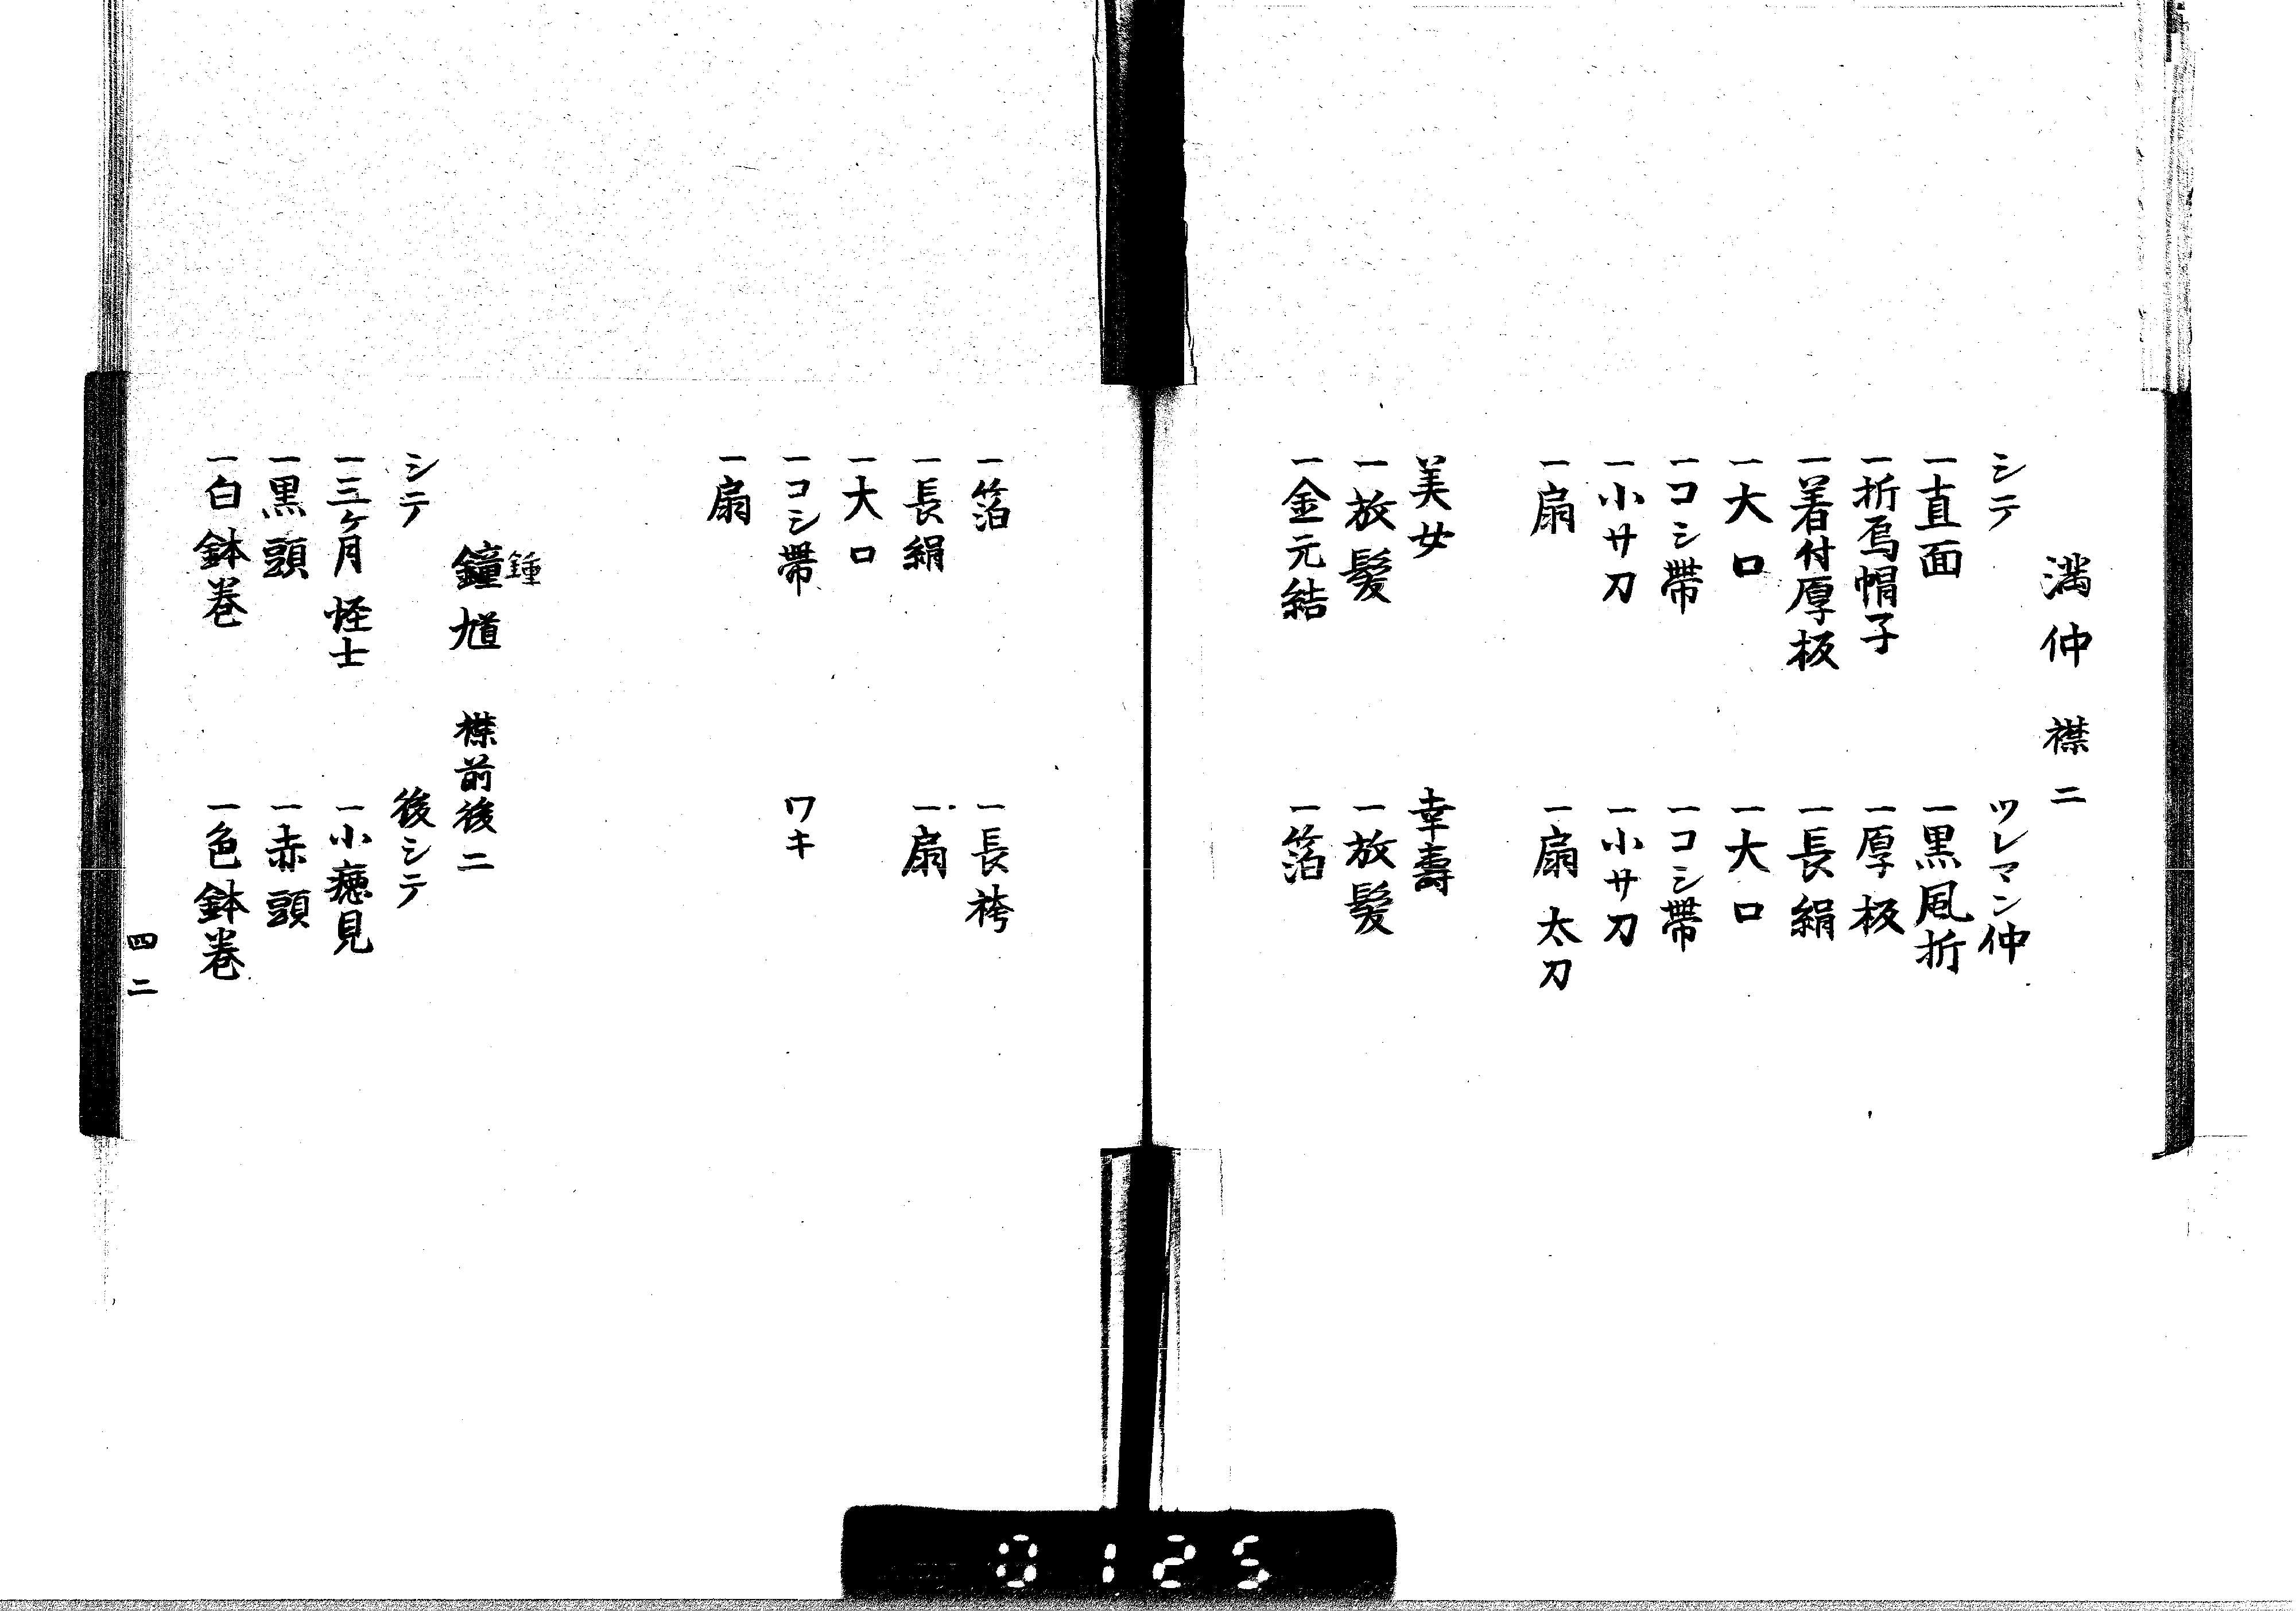 満仲　襟二
シテ　ツレマン仲
一直面　一黒風折
一折烏帽子　一厚板
一着付厚板　一長絹
一大口　一大口
一コシ帯　一コシ帯
一小サ刀　一小サ刀
一扇　一扇　太刀
美女　幸壽
一放髪　一放髪
一金元結　一箔
一箔　一長袴
一長絹　一扇
一大口
一コシ帯　ワキ
一扇
鍾
鐘馗　襟前後二
シテ　後シテ
一三ケ月　怪士　一小癋見
一黒頭　一赤頭
一白鉢巻　一色鉢巻
四二
0125